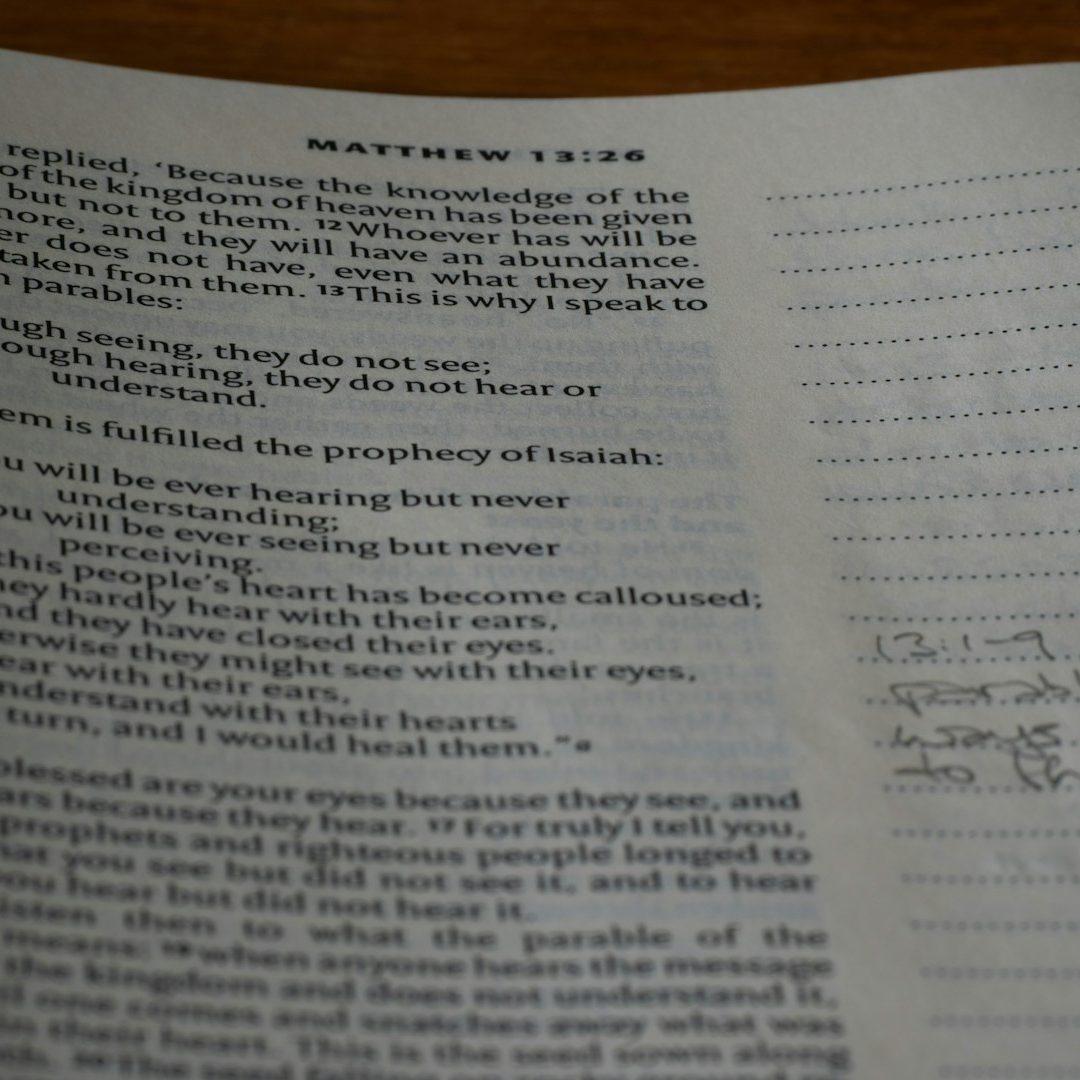 MATTHEW 13:26
replied, ‘Because the knowledge of the
of the kingdom of heaven has been given
but not to them. 12 Whoever has will be
more, and they will have an abundance.
er does not have, even what they have
taken from them. 13 This is why I speak to
n parables:
ugh seeing, they do not see;
ough hearing, they do not hear or
understand.
em is fulfilled the prophecy of Isaiah:
u will be ever hearing but never
understanding;
ou will be ever seeing but never
perceiving.
this people’s heart has become calloused;
hey hardly hear with their ears,
nd they have closed their eyes.
erwise they might see with their eyes,
ear with their ears,
nderstand with their hearts
turn, and I would heal them.”a
blessed are your eyes because they see, and
ars because they hear. 17 For truly I tell you,
prophets and righteous people longed to
hat you see but did not see it, and to hear
you hear but did not hear it.
isten then to what the parable of the
means: 19 when anyone hears the message
the kingdom and does not understand it,
l one comes and snatches away what was
in their heart. This is the seed sown along
20 The seed falling on
13:1-9
parabl
to th